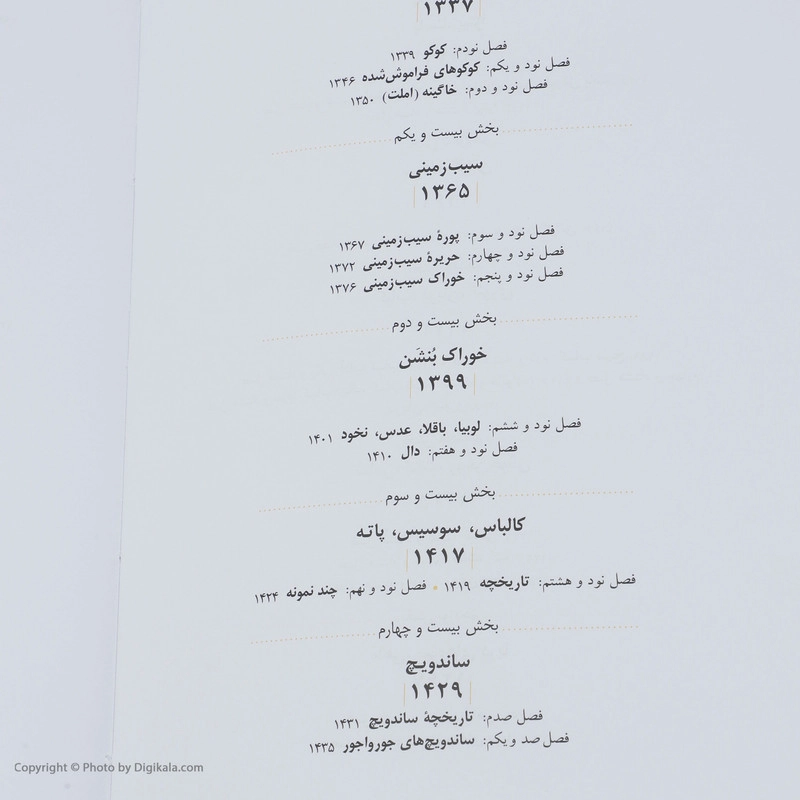 ۱۳۳۷
فصل نودم: کوکو ۱۳۳۹
فصل نود و یکم: کوکوهای فراموش‌شده ۱۳۴۶
فصل نود و دوم: خاگینه (املت) ۱۳۵۰
بخش بیست و یکم
سیب‌زمینی
۱۳۶۵
فصل نود و سوم: پورهٔ سیب‌زمینی ۱۳۶۷
فصل نود و چهارم: حریرهٔ سیب‌زمینی ۱۳۷۲
فصل نود و پنجم: خوراک سیب‌زمینی ۱۳۷۶
بخش بیست و دوم
خوراک بُنشَن
۱۳۹۹
فصل نود و ششم: لوبیا، باقلا، عدس، نخود ۱۴۰۱
فصل نود و هفتم: دال ۱۴۱۰
بخش بیست و سوم
کالباس، سوسیس، پاته
۱۴۱۷
فصل نود و هشتم: تاریخچه ۱۴۱۹ • فصل نود و نهم: چند نمونه ۱۴۲۴
بخش بیست و چهارم
ساندویچ
۱۴۲۹
فصل صدم: تاریخچهٔ ساندویچ ۱۴۳۱
فصل صد و یکم: ساندویچ‌های جورواجور ۱۴۳۵
Copyright © Photo by Digikala.com